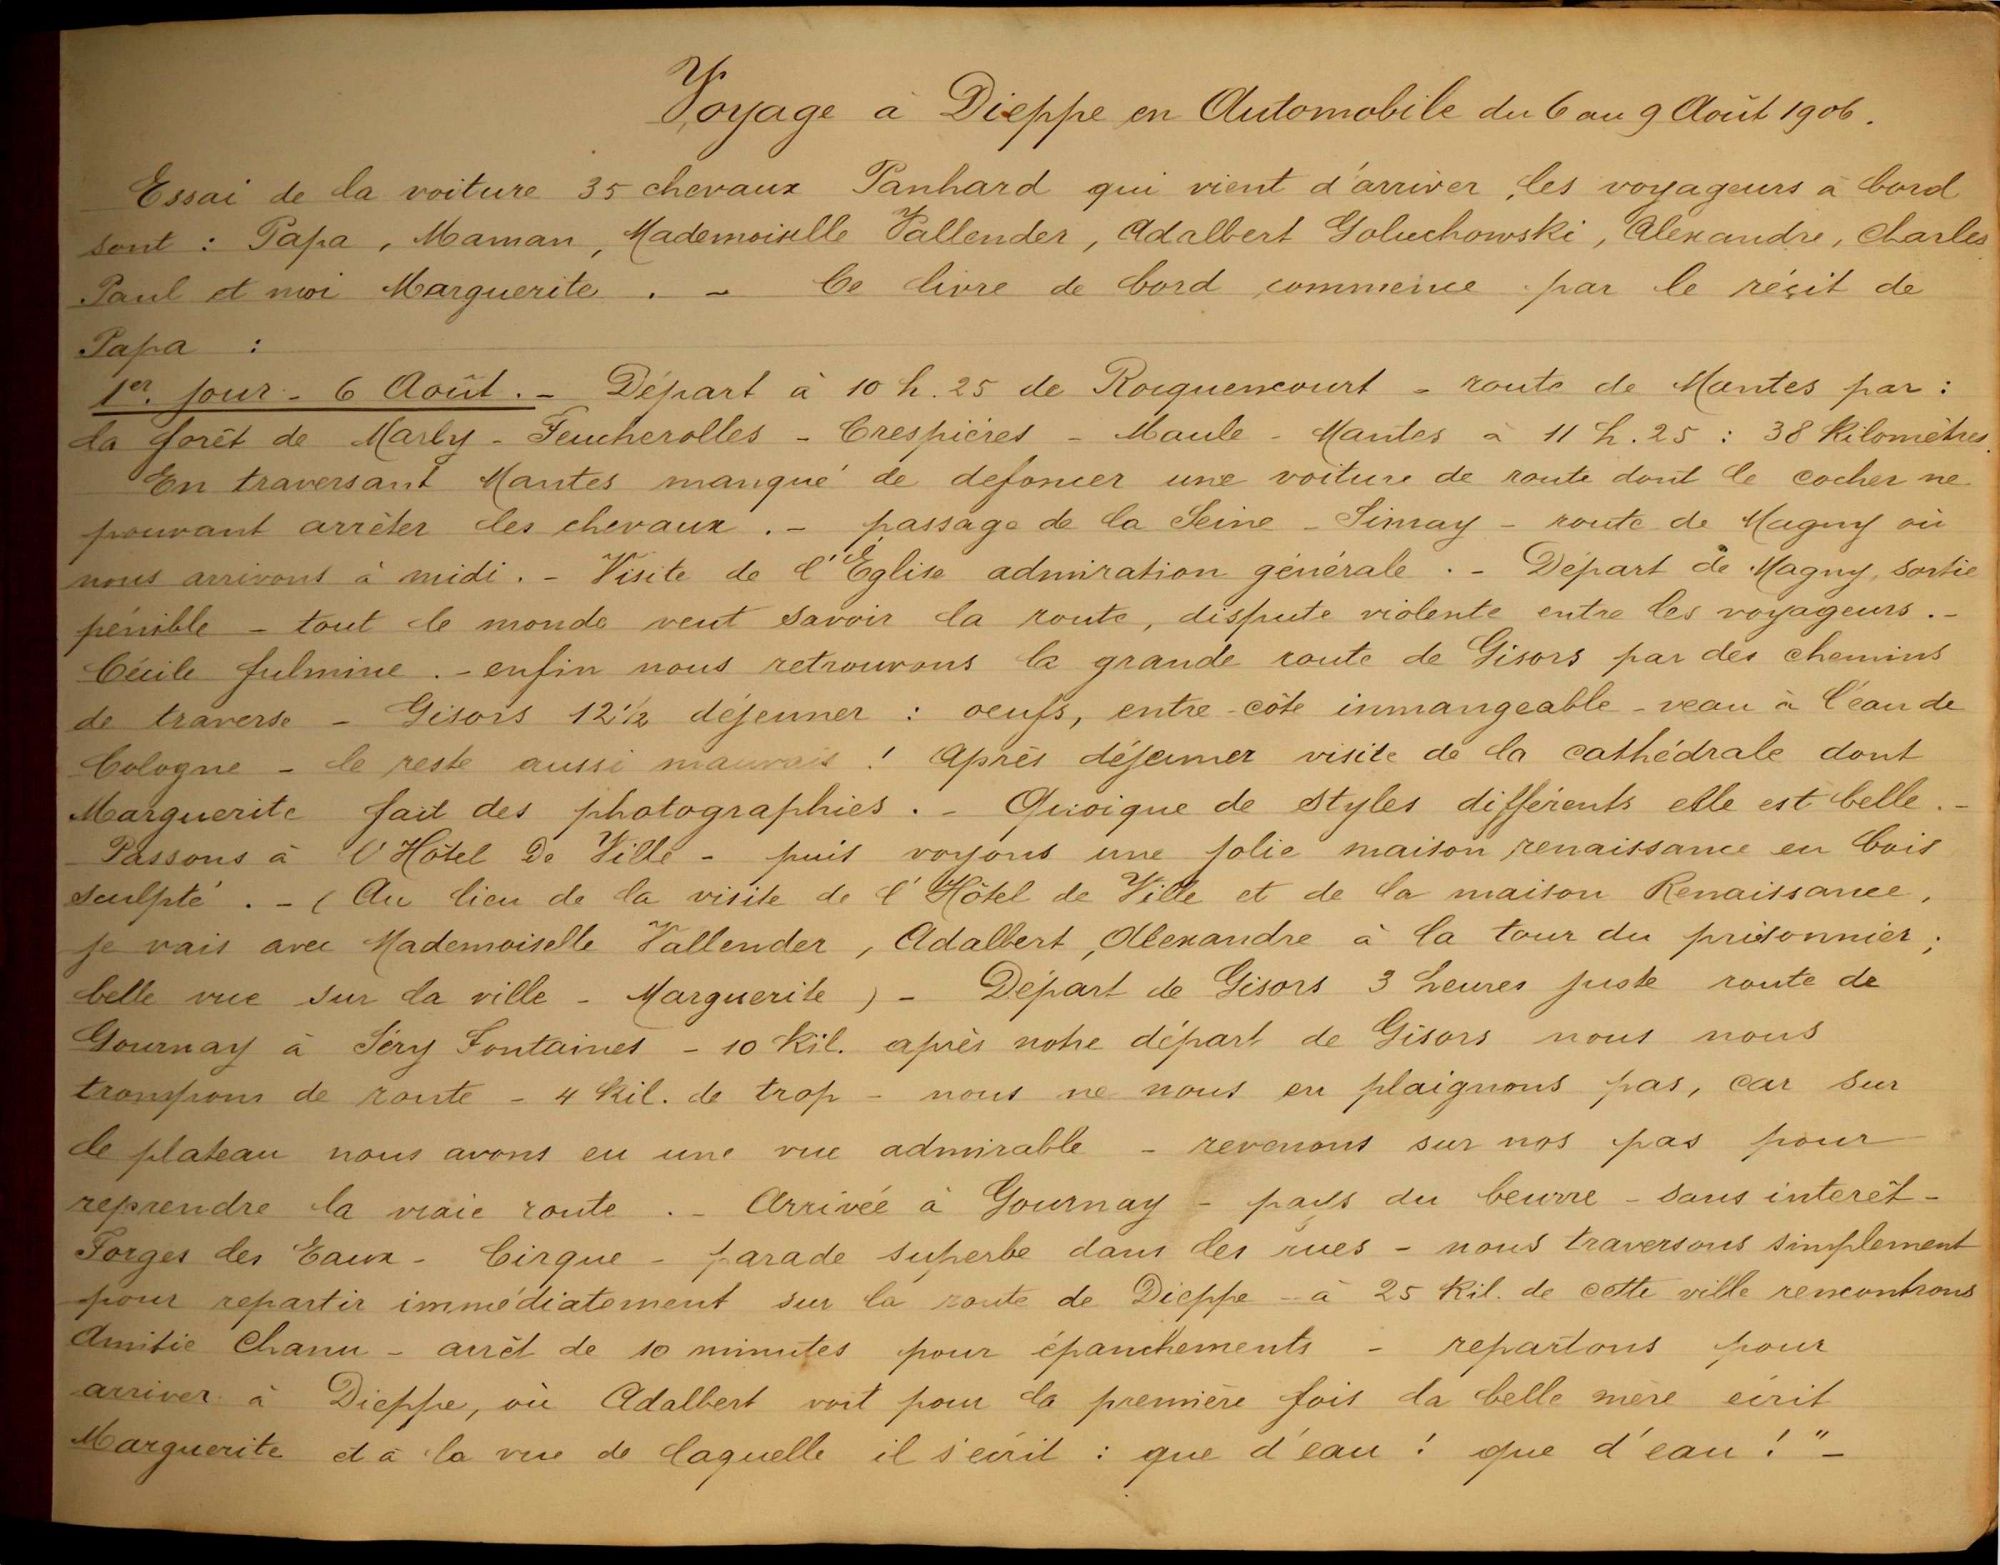 Voyage à Dieppe en Automobile du 6 au 9 Août 1906.
Essai de la voiture 35 chevaux Panhard qui vient d'arriver, les voyageurs à bord
sont : Papa, Maman, Mademoiselle Vallender, Adalbert Goluchowski, Alexandre, Charles
Paul et moi Marguerite . - Ce livre de bord commence par le réçit de
Papa :
1er. jour - 6 Août. - Départ à 10 h. 25 de Rocquencourt - route de Mantes par :
la forêt de Marly - Feucherolles - Crespières - Maule - Mantes à 11 h. 25 : 38 Kilomètres.
En traversant Mantes manqué de defoncer une voiture de route dont le cocher ne
pouvant arrêter les chevaux . - passage de la Seine - Limay - route de Magny où
nous arrivons à midi . - Visite de l'Église admiration générale . - Départ de Magny, sortie
pénible - tout le monde veut savoir la route, dispute violente entre les voyageurs . -
Cécile fulmine . - enfin nous retrouvons la grande route de Gisors par des chemins
de traverse - Gisors 12 1/2 déjeuner : oeufs, entre-côte inmangeable - veau à l'éau de
Cologne - le reste aussi mauvais ! Après déjeuner visite de la cathédrale dont
Marguerite fait des photographies . - Quoique de styles différents elle est belle . -
Passons à l'Hôtel De Ville - puis voyons une jolie maison renaissance en bois
sculpté . - ( Au lieu de la visite de l'Hôtel de Ville et de la maison Renaissance,
je vais avec Mademoiselle Vallender, Adalbert, Alexandre à la tour du prisonnier ;
belle vue sur la ville - Marguerite ) - Départ de Gisors 3 heures juste route de
Gournay à Séry Fontaines - 10 Kil. après notre départ de Gisors nous nous
trompons de route - 4 Kil. de trop - nous ne nous en plaignons pas, car sur
le plateau nous avons eu une vue admirable - revenons sur nos pas pour
reprendre la vraie route . - Arrivée à Gournay - pays du beurre - sans interêt -
Forges les Eaux - Cirque - parade superbe dans les rues - nous traversons simplement
pour repartir immédiatement sur la route de Dieppe - à 25 Kil. de cette ville rencontrons
Amitie Chanu - arrêt de 10 minutes pour épanchements - repartons pour
arriver à Dieppe, où Adalbert voit pour la première fois la belle mère écrit
Marguerite et à la vue de laquelle il s'écrit : que d'eau ! que d'eau ! " -